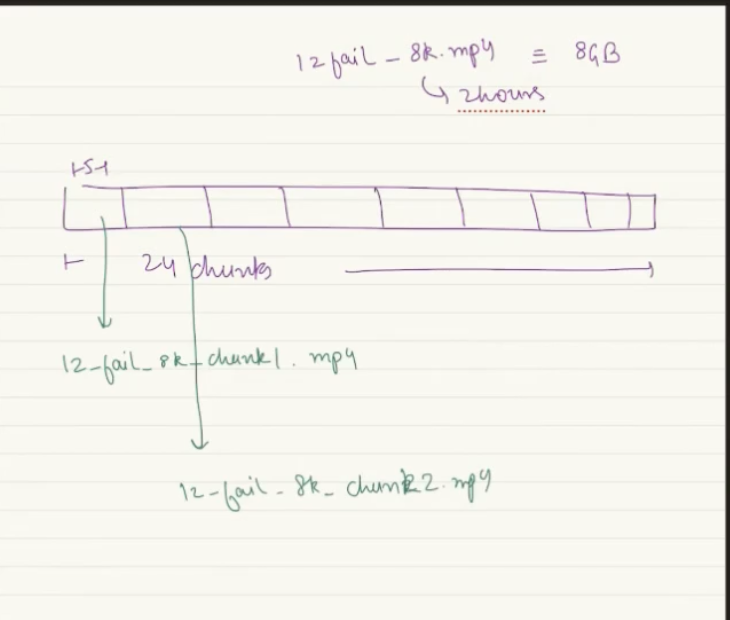 12fail - 8k.mp4 ≡ 8GB
↳ 2hours
⊢5⊣
⊢ 24 chunks
12-fail-8k-chunk1.mp4
12-fail-8k-chunk2.mp4